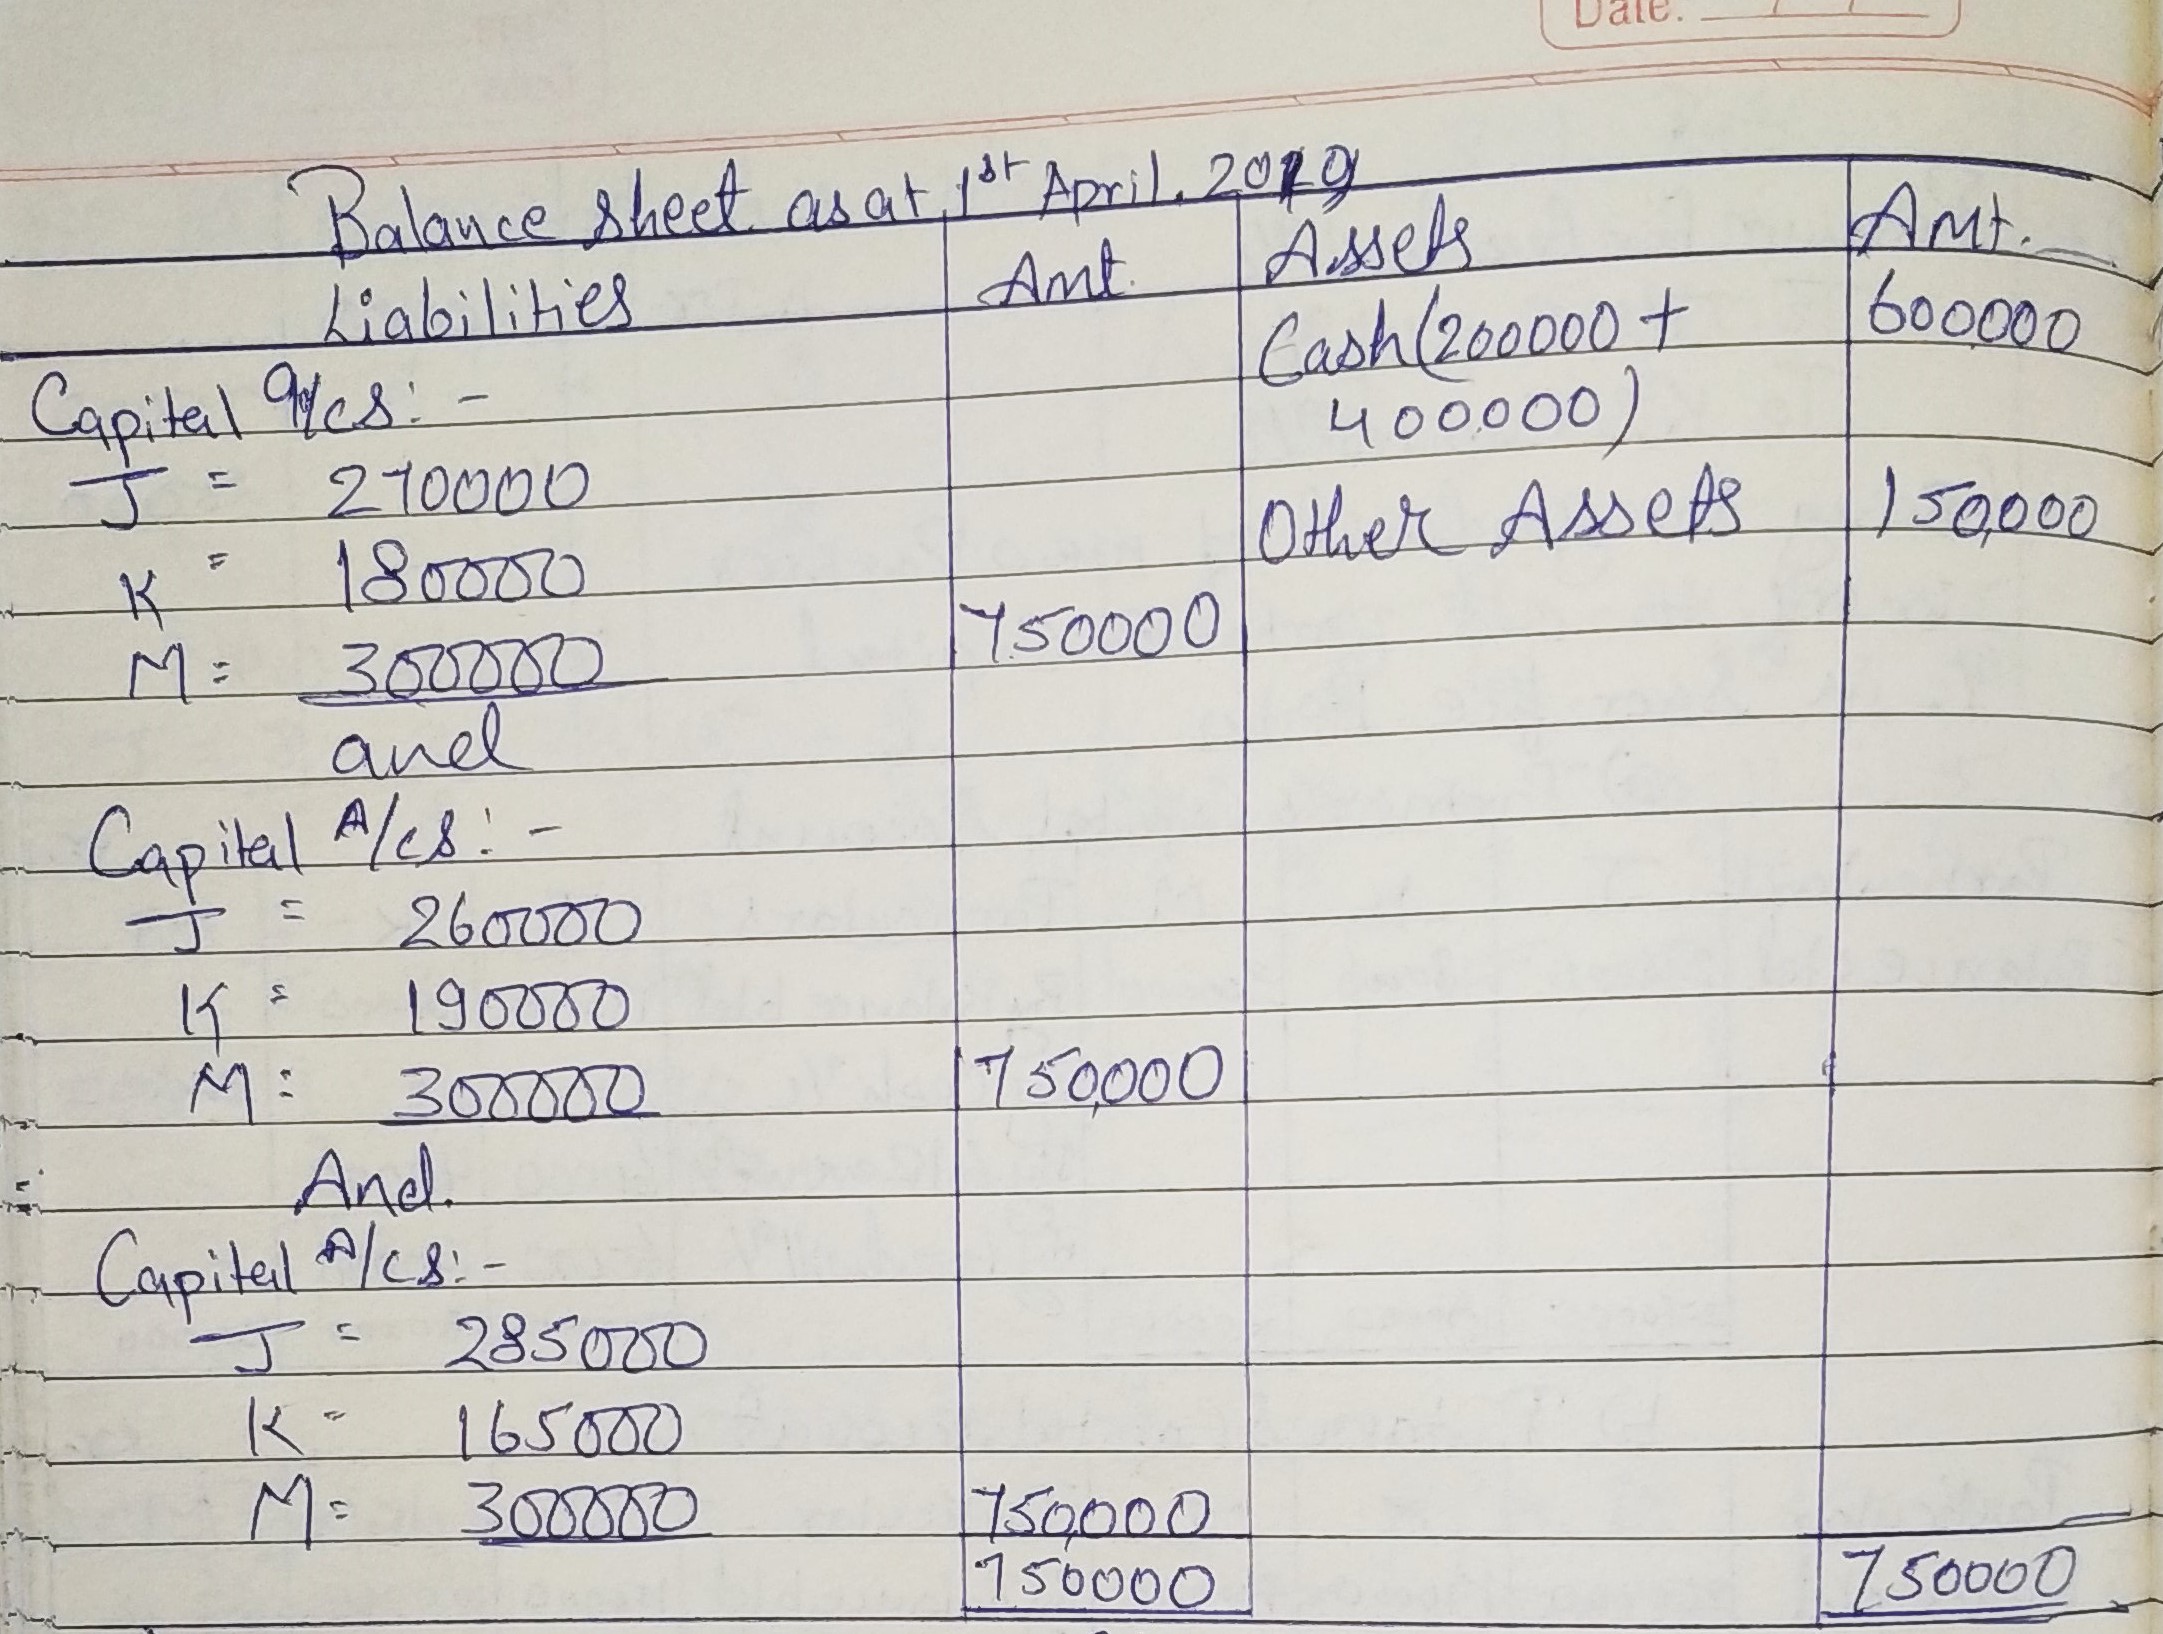 Date. / /
Balance sheet as at 1st April. 2019
Liabilities Amt. Assets Amt.
Capital A/cs:- Cash (200000 + 600000
400000)
J = 270000 Other Assets 150,000
K = 180000
M = 300000 750000
and
Capital A/cs:-
J = 260000
K = 190000
M = 300000 750,000
And.
Capital A/cs:-
J = 285000
K = 165000
M = 300000 750,000
750000 750000